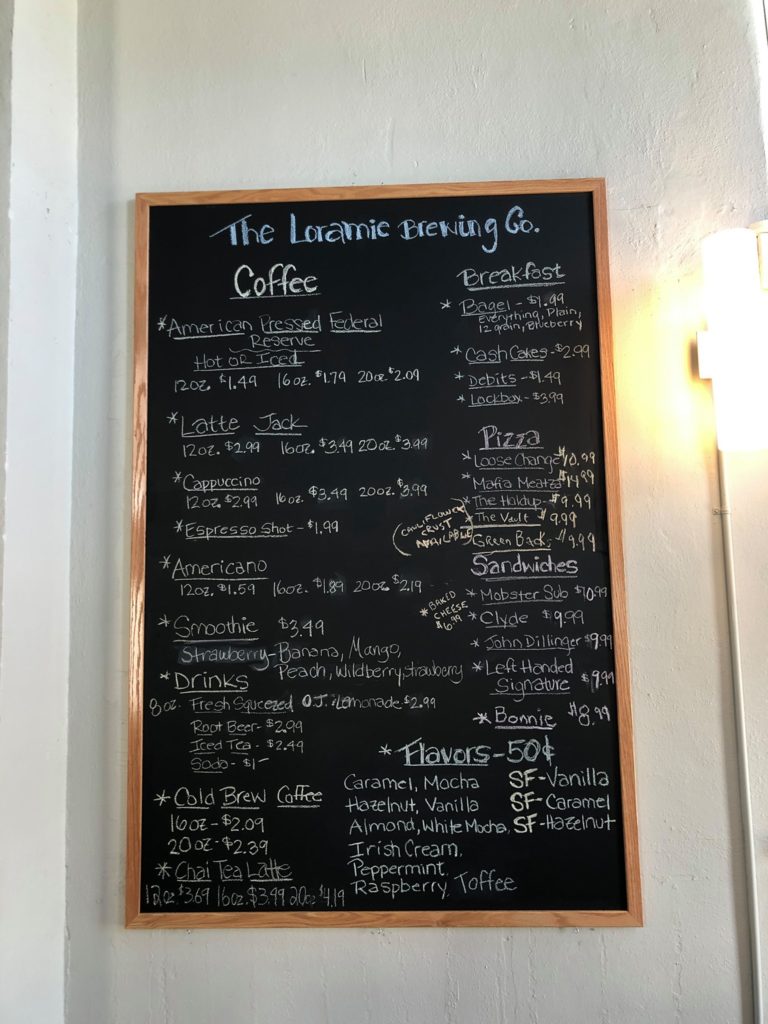 The Loramie Brewing Co.
Coffee
*American Pressed Federal
Reserve
Hot or Iced
12oz. $1.49 16oz. $1.79 20oz. $2.09
*Latte Jack
12oz. $2.99 16oz. $3.49 20oz. $3.99
*Cappuccino
12oz. $2.99 16oz. $3.49 20oz. $3.99
*Espresso Shot - $1.99
*Americano
12oz. $1.59 16oz. $1.89 20oz. $2.19
*Smoothie $3.49
Strawberry-Banana, Mango,
Peach, Wildberry, Strawberry
*Drinks
8oz. Fresh Squeezed O.J. Lemonade $2.99
Root Beer- $2.99
Iced Tea - $2.49
Soda- $1-
*Cold Brew Coffee
16oz - $2.09
20oz - $2.39
*Chai Tea Latte
12oz. $3.69 16oz. $3.99 20oz $4.19
Breakfast
* Bagel - $1.99
Everything, Plain,
12 grain, Blueberry
* Cash Cakes - $2.99
* Debits - $1.49
* Lockbox - $3.99
Pizza
* Loose Change $10.99
* Mafia Meatza $14.99
* The Holdup - $9.99
* The Vault $9.99
Green Back - $9.99
(CAULIFLOWER
CRUST
AVAILABLE
Sandwiches
* Mobster Sub $10.99
* Clyde $9.99
* John Dillinger $9.99
* Left Handed
Signature $9.99
* Bonnie $8.99
* BAKED
CHEESE
$6.99
* Flavors - 50¢
Caramel, Mocha
Hazelnut, Vanilla
Almond, White Mocha,
Irish Cream,
Peppermint,
Raspberry, Toffee
SF-Vanilla
SF-Caramel
SF-Hazelnut